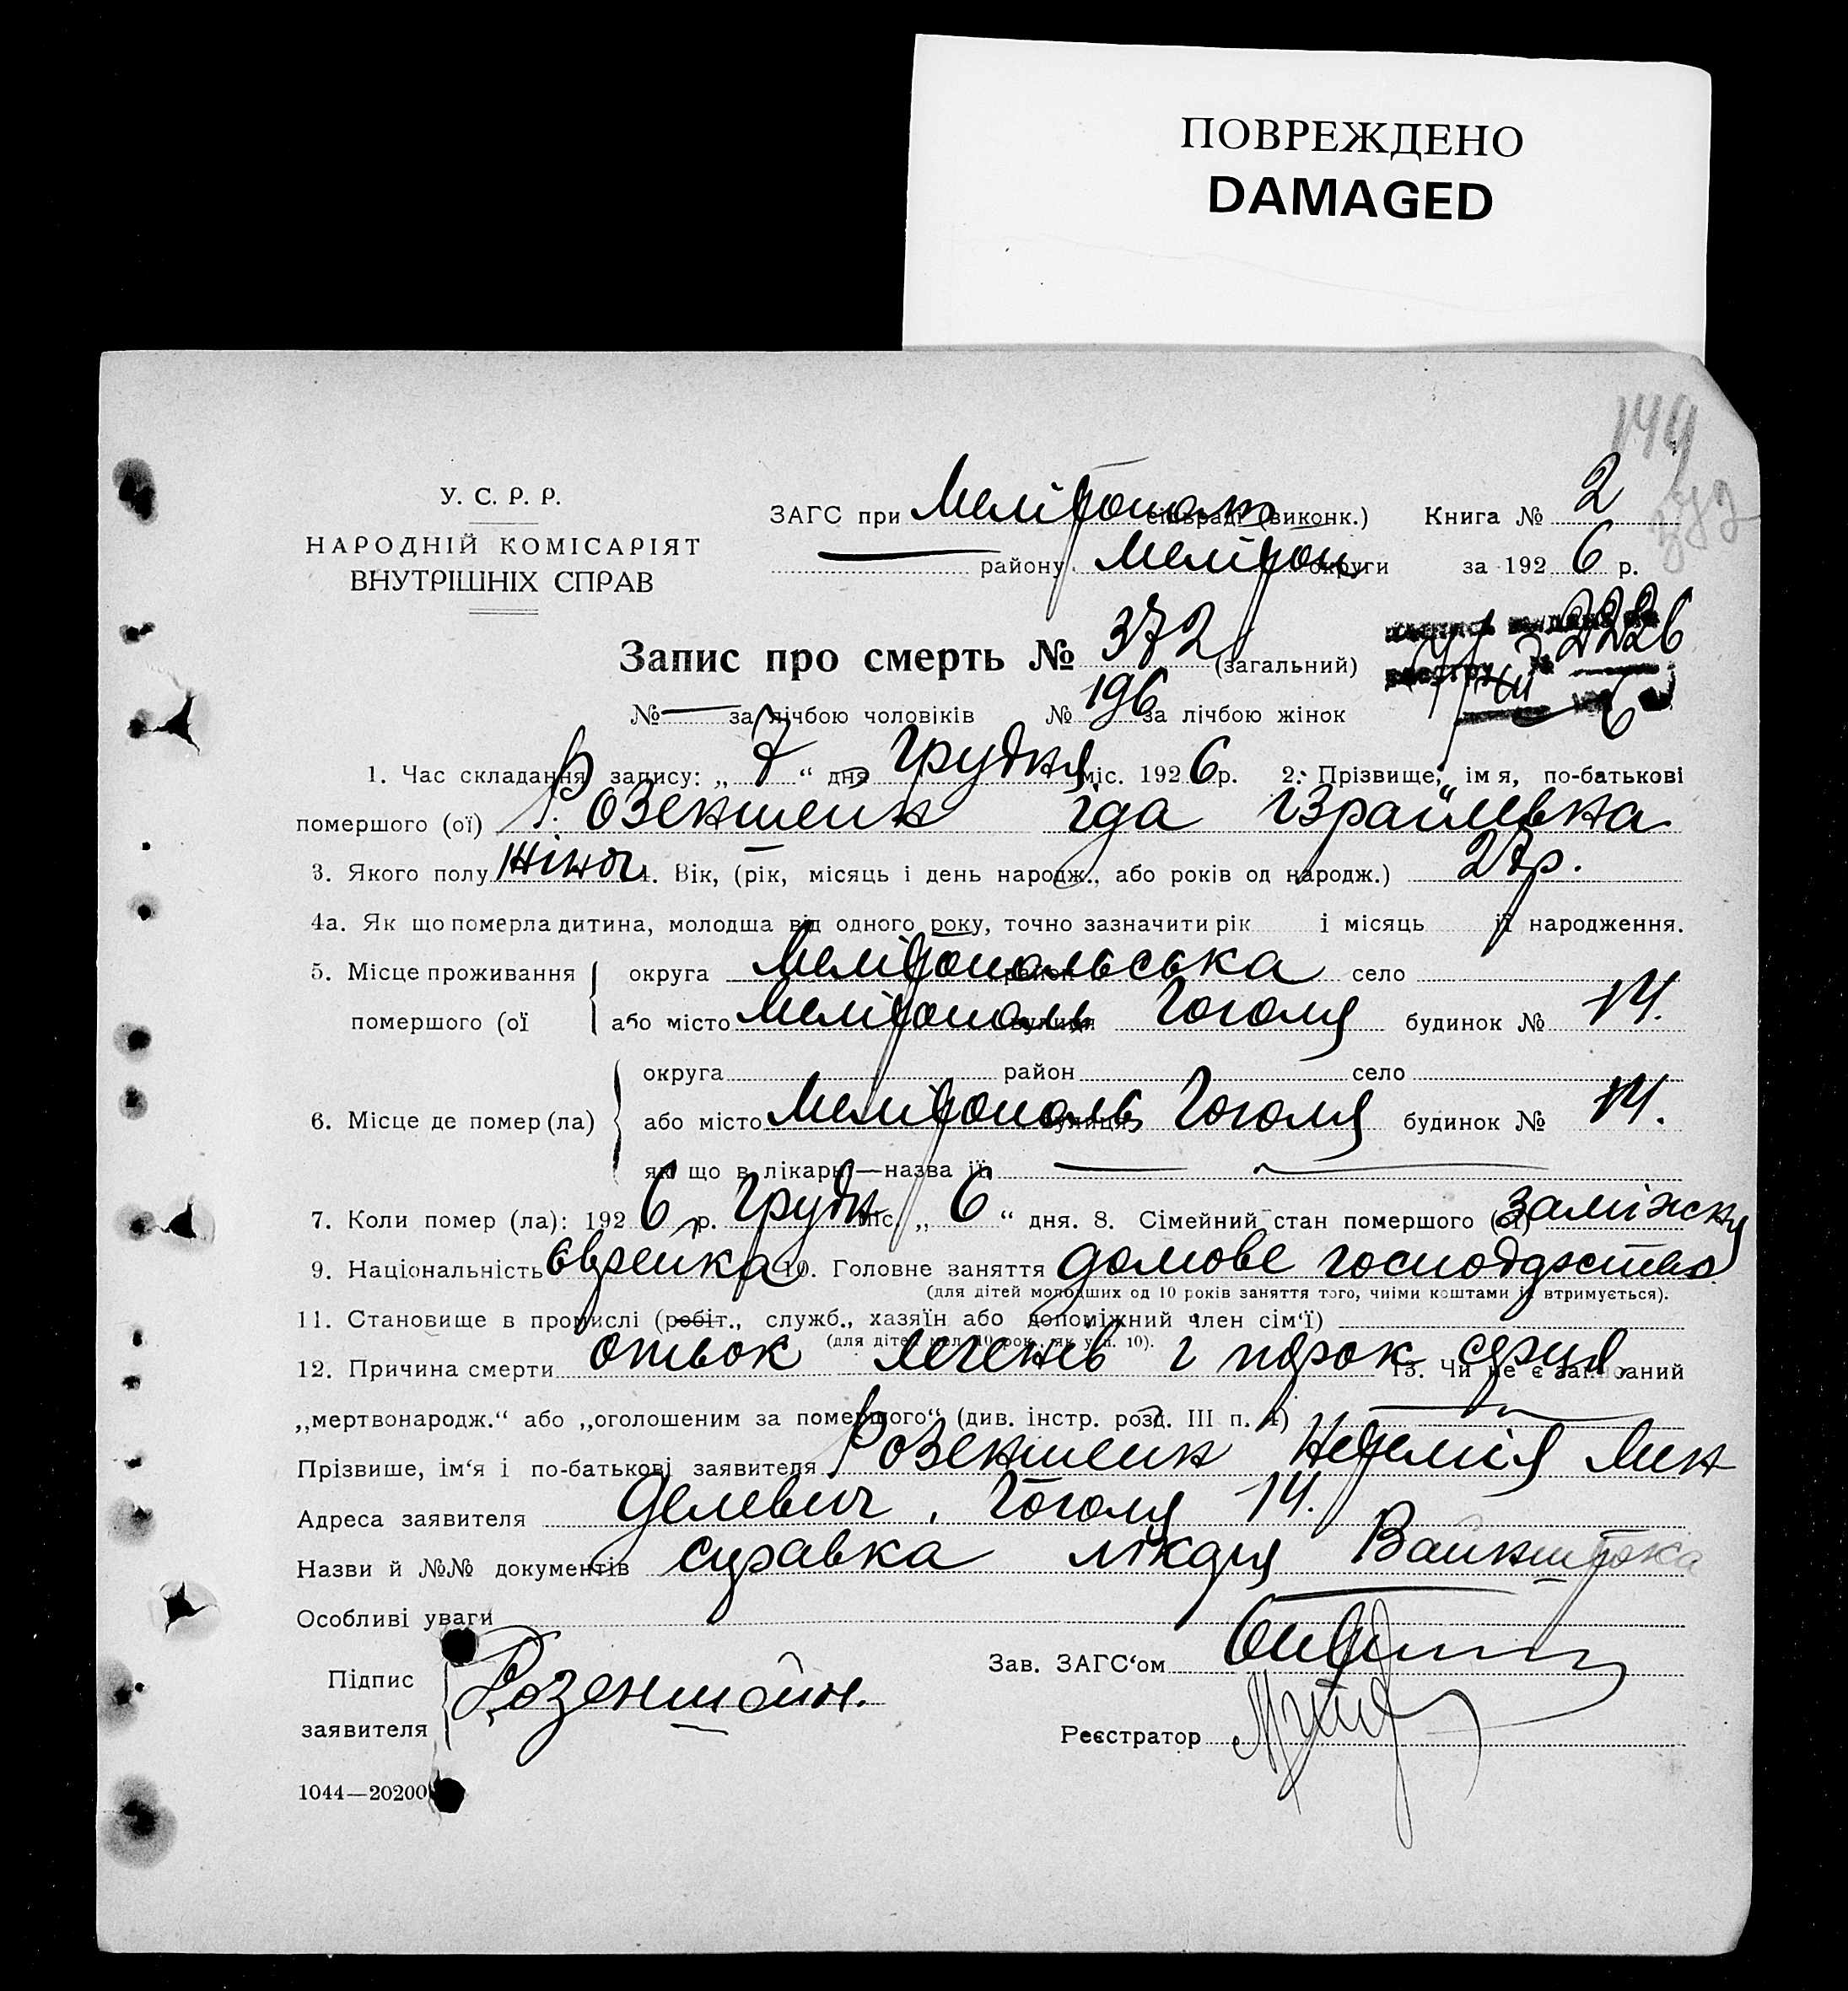 ПОВРЕЖДЕНО
DAMAGED
149
У. С. Р. Р.
НАРОДНІЙ КОМІСАРІЯТ
ВНУТРІШНІХ СПРАВ
ЗАГС при Меліτопольск сільраді (виконк.) Книга № 2
району Меліτоп округи за 1926 р.
Запис про смерть № 372 (загальний)
№ — за лічбою чоловіків № 196 за лічбою жінок
1. Час складання запису: „7“ дня Грудня міс. 1926 р. 2. Прізвище, ім я, по-батькові
помершого (ої) Розенштейн Іда Ізраїлевна
3. Якого полу жіноч 4. Вік, (рік, місяць і день народж., або років од народж.) 27 р.
4а. Як що померла дитина, молодша від одного року, точно зазначити рік і місяць її народження.
5. Місце проживання округа Мелітопольська район село
помершого (ої або місто Мелітополь вулиця Гоголя будинок № 14.
округа район село
6. Місце де помер (ла) або місто Мелітополь вулиця Гоголя будинок № 14.
як що в лікарні—назва її —
7. Коли помер (ла): 1926 р. Грудн міс. „6“ дня. 8. Сімейний стан помершого (ої) заміжня
9. Національність єврейка 10. Головне заняття домове господарство
(для дітей молодших од 10 років заняття того, чиїми коштами їх втримується).
11. Становище в промислі (робіт., служб., хазяїн або допоміжний член сім'ї)
(для дітей мол. 10 рок. як у п. 10).
12. Причина смерти отьок легенів і порок серця 13. Чи не є записаний
„мертвонародж.“ або „оголошеним за помершого“ (див. інстр. розд. III п. 4) —
Прізвише, ім'я і по-батькові заявителя Розенштейн Неремія Мен
Адреса заявителя делевич, Гоголя 14.
Назви й №№ документів справка лікаря Вайнштока
Особливі уваги
Підпис
заявителя Розенштейн.
Зав. ЗАГС'ом
Реєстратор
1044—20200